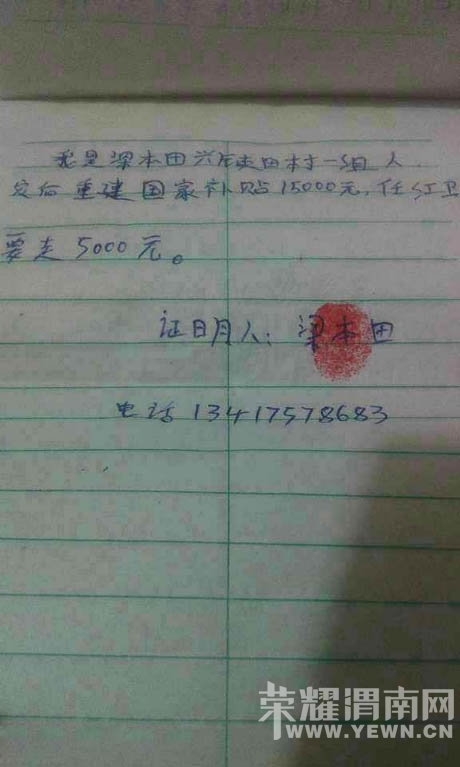 我是梁本田兴庄田本于一组人
灾后重建国家补贴15000元,任红卫
要走5000元。
证明人:梁本田
电话13417578683
荣耀渭南网
WWW.YEWN.CN